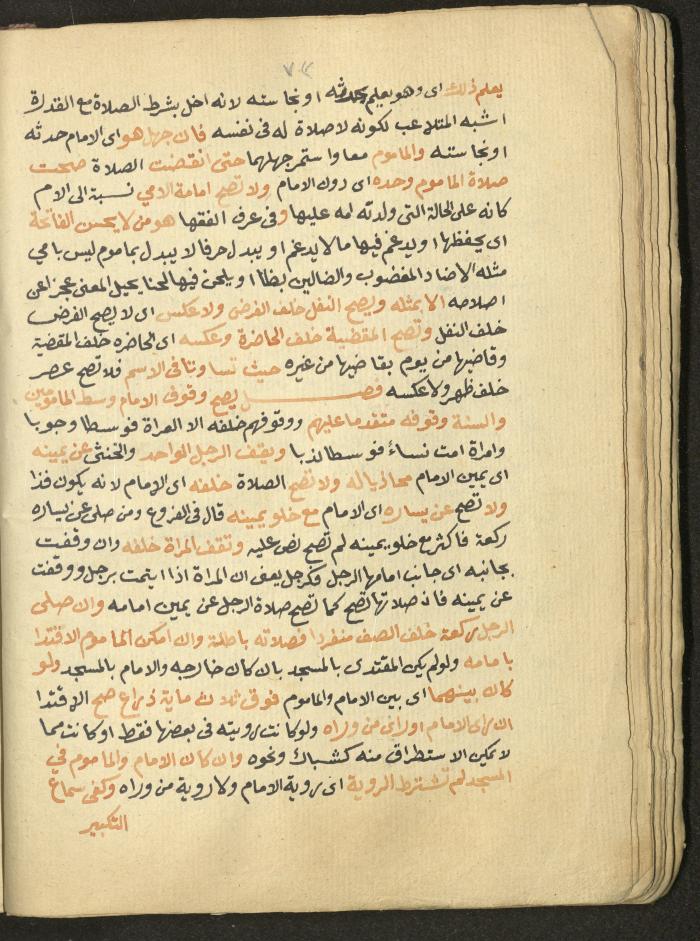 يعلم ذلك اى وهو يعلم حدثه او نجاسته لانه اخل بشرط الصلاة مع القدرة
اشبه المتلاعب لكونه لاصلاة له فى نفسه فان جهل هو اى الامام حدثه
او نجاسته والماموم معا واستمر جهلهما حتى انقضت الصلاة صحت
صلاة الماموم وحده اى دون الامام ولا تصح امامة الامي نسبة الى الام
كانه على الحالة التى ولدته امه عليها وفى عرف الفقها هو من لا يحسن الفاتحة
اى يحفظها او يدغم فيها مالا يدغم او يبدل حرفا لا يبدل بماموم ليس بامي
مثله الاضاد المغضوب والضالين ابظا او يلحن فيها لحنا يحيل المعنى عجزا عن
اصلاحه الا بمثله ويصح النفل خلف الفرض ولا عكس اى لا يصح الفرض
خلف النفل وتصح المقضية خلف الحاضرة وعكسه اى الحاضره خلف المقضية
وقاضيها من يوم بقاضيها من غيره حيث تساوتا فى الاسم فلا تصح عصر
خلف ظهر ولا عكسه فصل يصح وقوف الامام وسط المامومين
والسنة وقوفه متقدما عليهم ووقوفهم خلفه الا العراة فوسطا وجوبا
وامراة امت نساء فوسطا ندبا ويقف الرجل الواحد والخنثى عن يمينه
اى يمين الامام محاذيا له ولا تصح الصلاة خلفه اى الامام لانه يكون فذا
ولا تصح عن يساره اى الامام مع خلو يمينه قال فى الفروع ومن صلى عن يساره
ركعة فاكثر مع خلو يمينه لم تصح نص عليه وتقف المراة خلفه وان وقفت
بجانبه اى جانب امامها الرجل فكرجل يعنى ان المراة اذا ايتمت برجل ووقفت
عن يمينه فان صلاتها تصح كما تصح صلاة الرجل عن يمين امامه وان صلى
الرجل ركعة خلف الصف منفردا فصلاته باطلة وان امكن الماموم الاقتدا
بامامه ولو لم يكن المقتدى بالمسجد بان كان خارجه والامام بالمسجد ولو
كان بينهما اى بين الامام والماموم فوق ثلاث ماية ذراع صح الاقتدا
ان راى الامام او راى من وراه ولو كانت رويته فى بعضها فقط او كانت مما
لا يمكن الاستطراق منه كشباك ونحوه وان كان الامام والماموم في
المسجد لم تشترط الروية اى روية الامام ولا روية من وراه وكفى سماع
التكبير